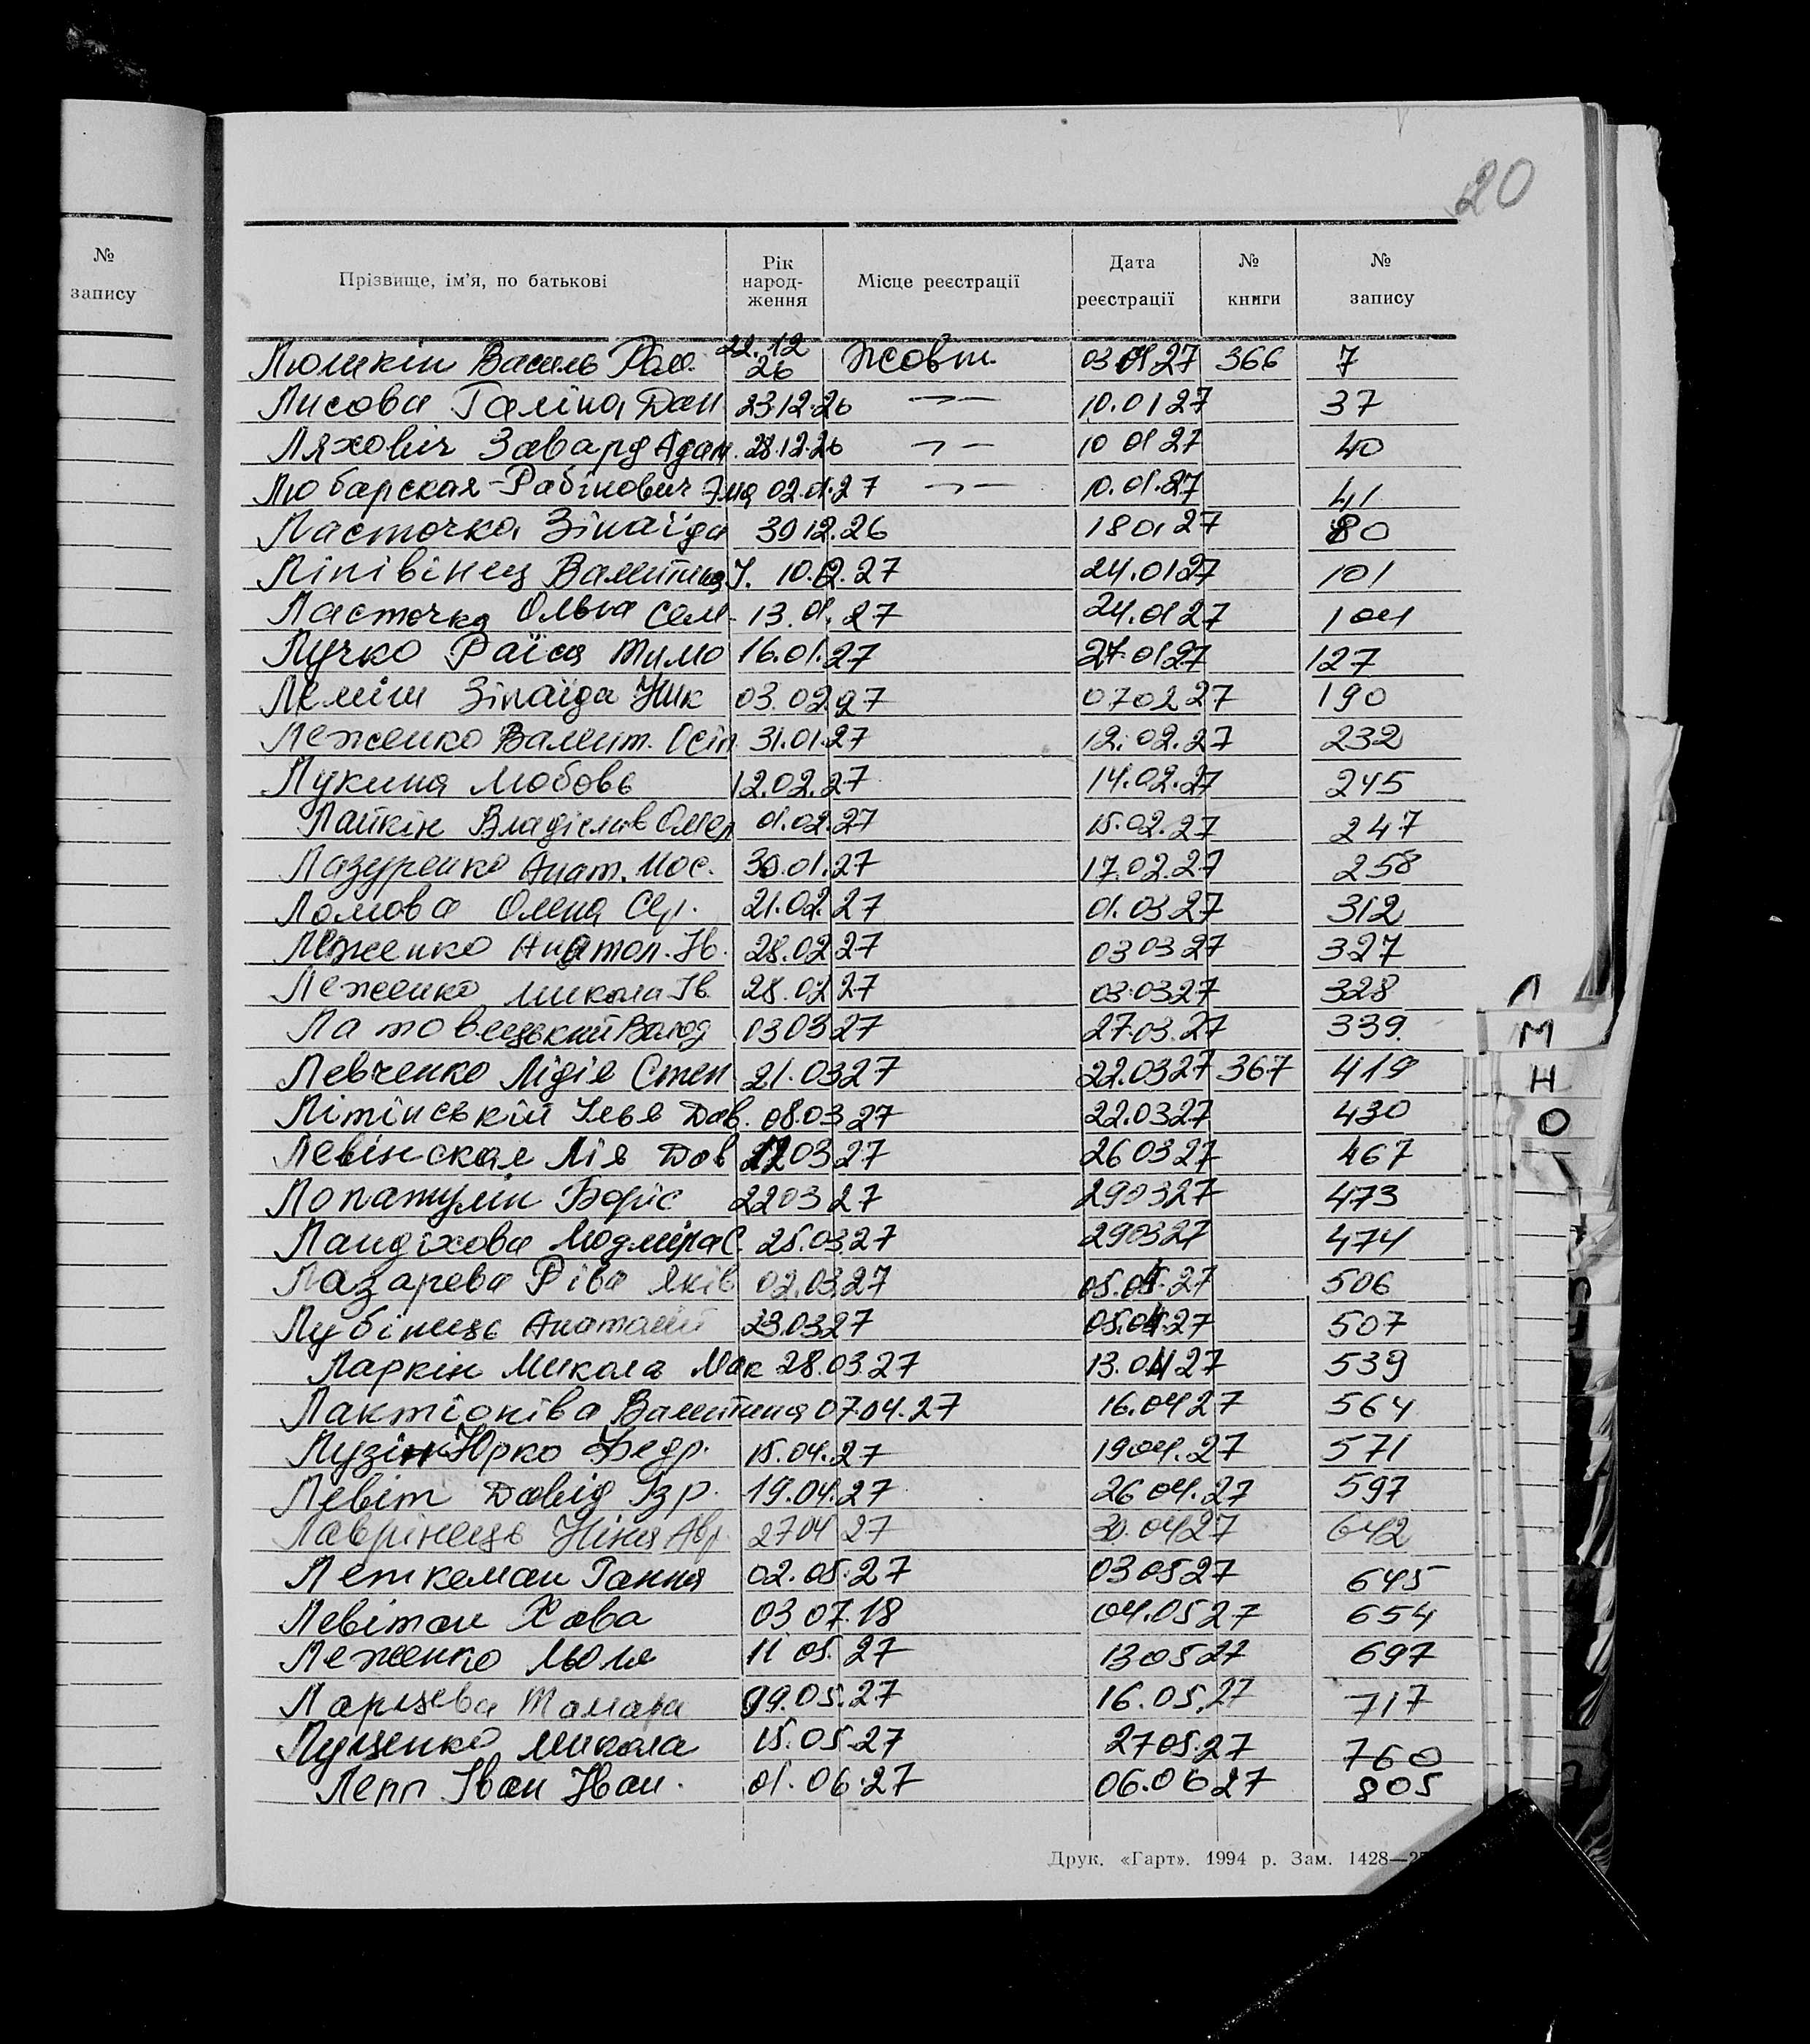 20
№
запису
Прізвище, ім'я, по батькові Рік народ-ження Місце реєстрації Дата реєстрації № книги № запису
Люшкін Василь 22.12 26 Жовт. 03 01 27 366 7
Лисова Галіна Дан 23.12.26 —"— 10.01 27 37
Ляховіч Адам. 28.12.26 —"— 10 01 27 40
Любарская-Рабінович 02.01.27 —"— 10.01.27 41
Ласточка Зінаїда 30 12.26 18 01 27 80
Ліпівінец Валентина 27 24.01 27 101
Ласточка Ольга Сем. 13.01.27 24.01 27 104
Лучко Раїса Тимо 16.01.27 27.01 27 127
Леміш Зінаїда Ник 03.02 27 07 02 27 190
Леженко Валент. Осіп. 31.01.27 12.02.27 232
Лукина Любовь 12.02.27 14.02.27 245
Лапкін Владіслав 01.02.27 15.02.27 247
Лазуренко Анат. Иос. 30.01.27 17.02.27 258
Ломова Олена Сер. 21.02.27 01.03 27 312
Леженко Анатол. Ів. 28.02 27 03 03 27 327
Леженко Микола Ів. 28.02 27 03.03 27 328
Латовецький Волод 03 03 27 27.03.27 339
Левченко Лідія Степ 21.03 27 22.03 27 367 419
Літінській Ілья Дав. 08.03.27 22.03 27 430
Левінская Лія Дов 03 27 26 03 27 467
Лопатулін Боріс 22 03 27 29 03 27 473
Ландіхова Людміла С. 25.03.27 29 03 27 474
Лазарева Ріва Яків 02.03.27 05.04.27 506
Лубінець Анатолій 23.03 27 05.04.27 507
Ларкін Микола Мак 28.03.27 13.04 27 539
Лактіоніва Валентина 07.04.27 16.04 27 564
Лузін Юрко Федр. 15.04.27 19 04.27 571
Левіт Давід Ізр. 19.04.27 26 04.27 597
Лаврінець Ніна Авр. 27 04 27 30.04 27 642
Леткеман Ганна 02.05.27 03 05 27 645
Левітан Хава 03 07.18 04.05 27 654
Леженко Юля 11 05.27 13 05 27 697
Ларцева Тамара 09.05.27 16.05.27 717
Луценко Микола 15.05.27 27 05.27 760
Лепп Іван Іван. 01.06.27 06.06 27 805
Л
М
Н
О
Друк. «Гарт». 1994 р. Зам. 1428—